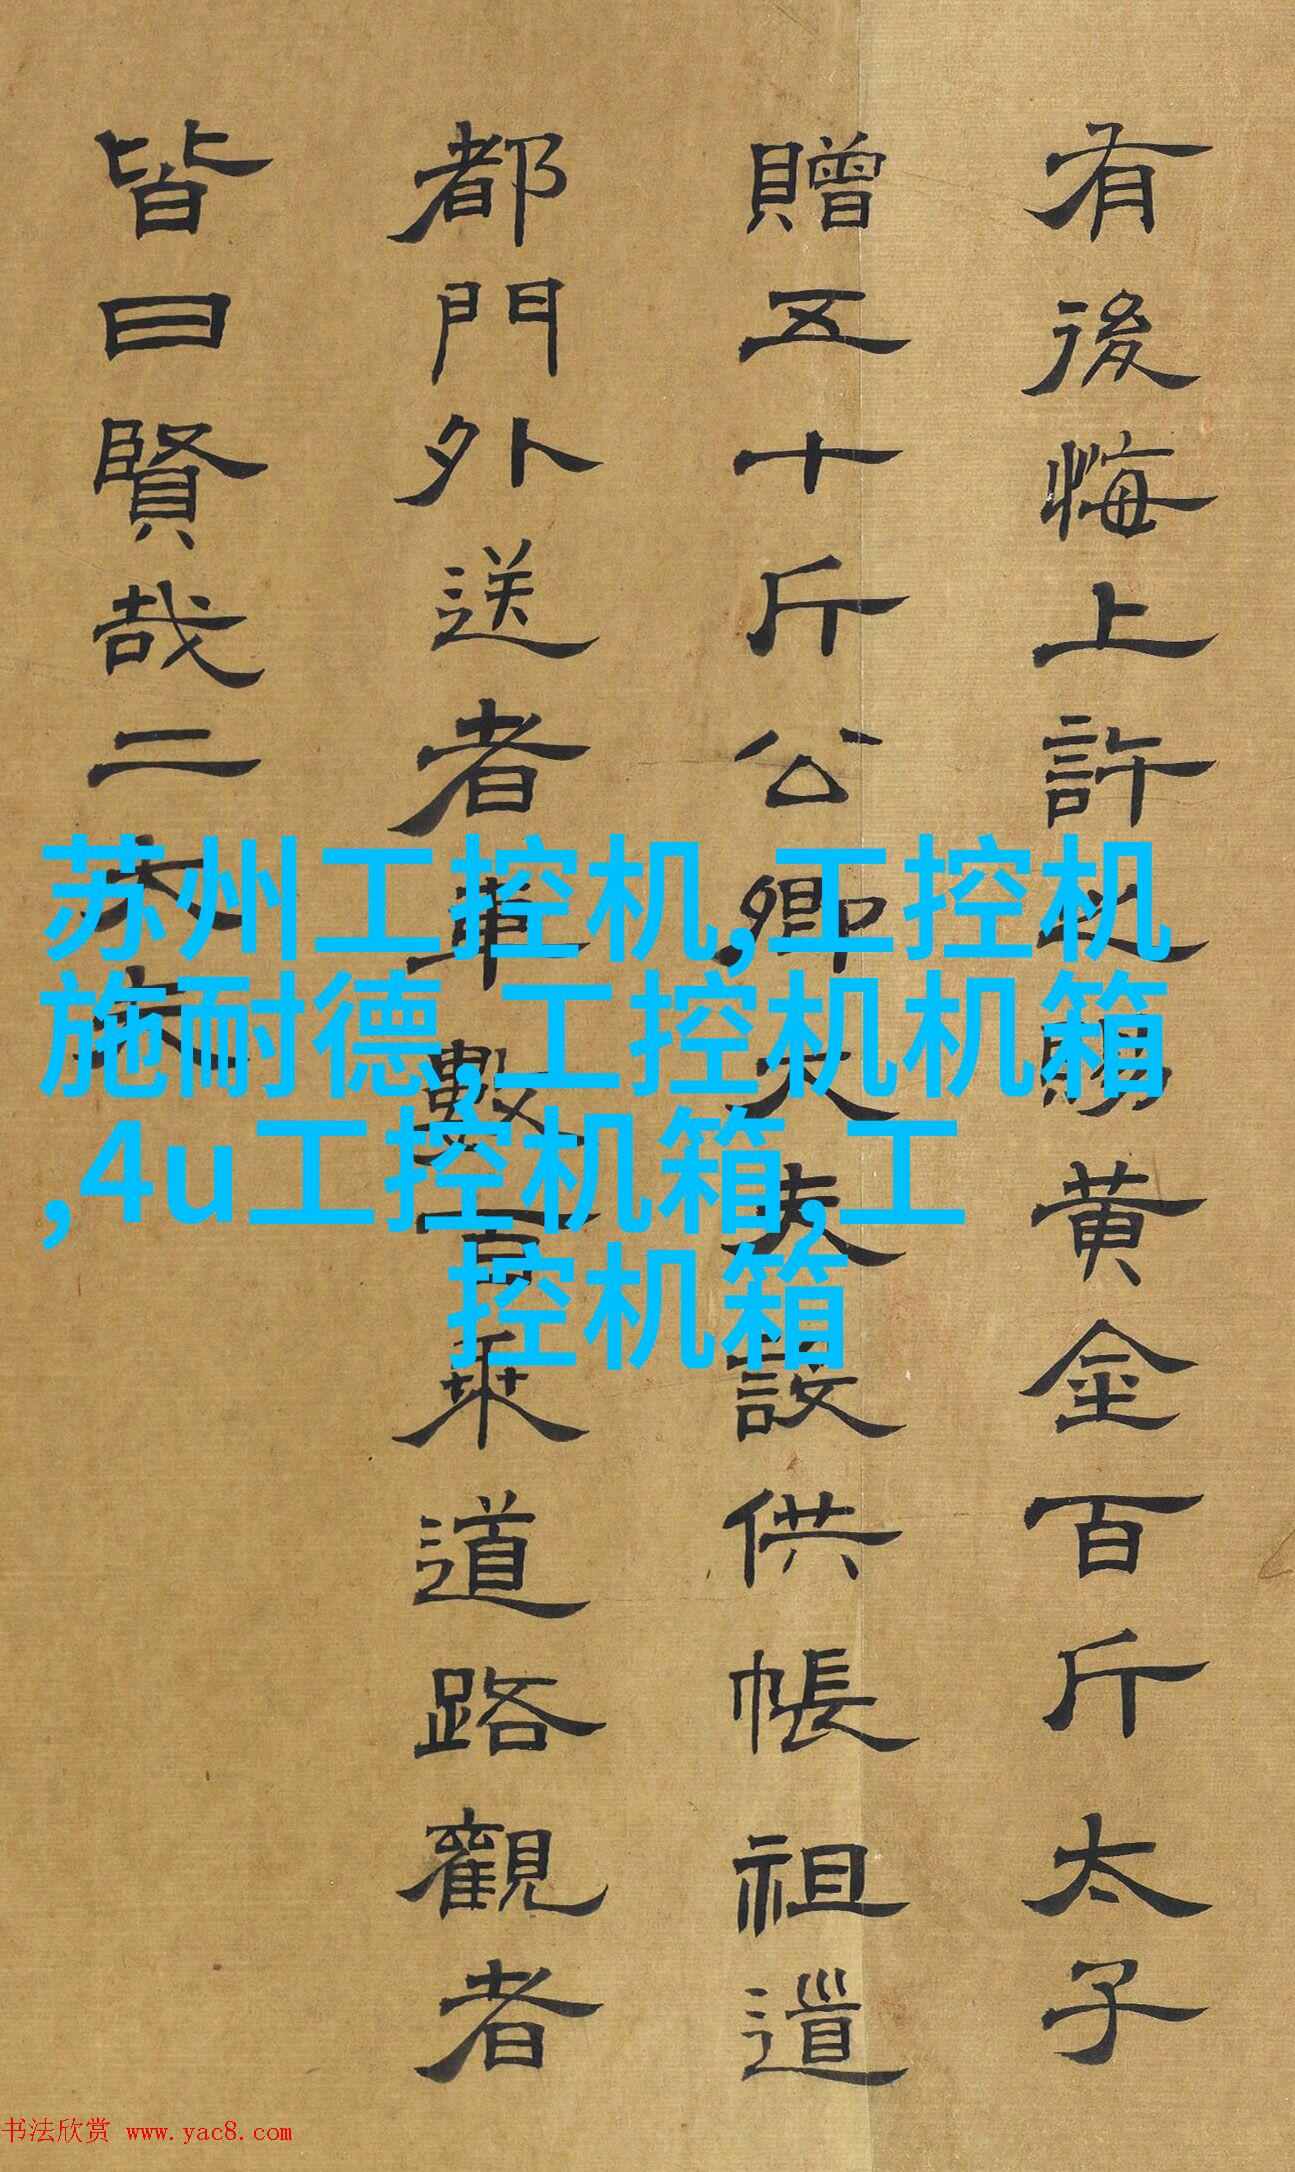 有後悔上許之賜黄金百斤太子
贈五十斤公卿大夫設供帳祖道
都門外送者車數百乘道路觀者
皆曰賢哉二大夫
苏州工控机,工控机
施耐德,工控机机箱
,4u工控机箱,工
控机箱
书法欣赏 www.yac8.com